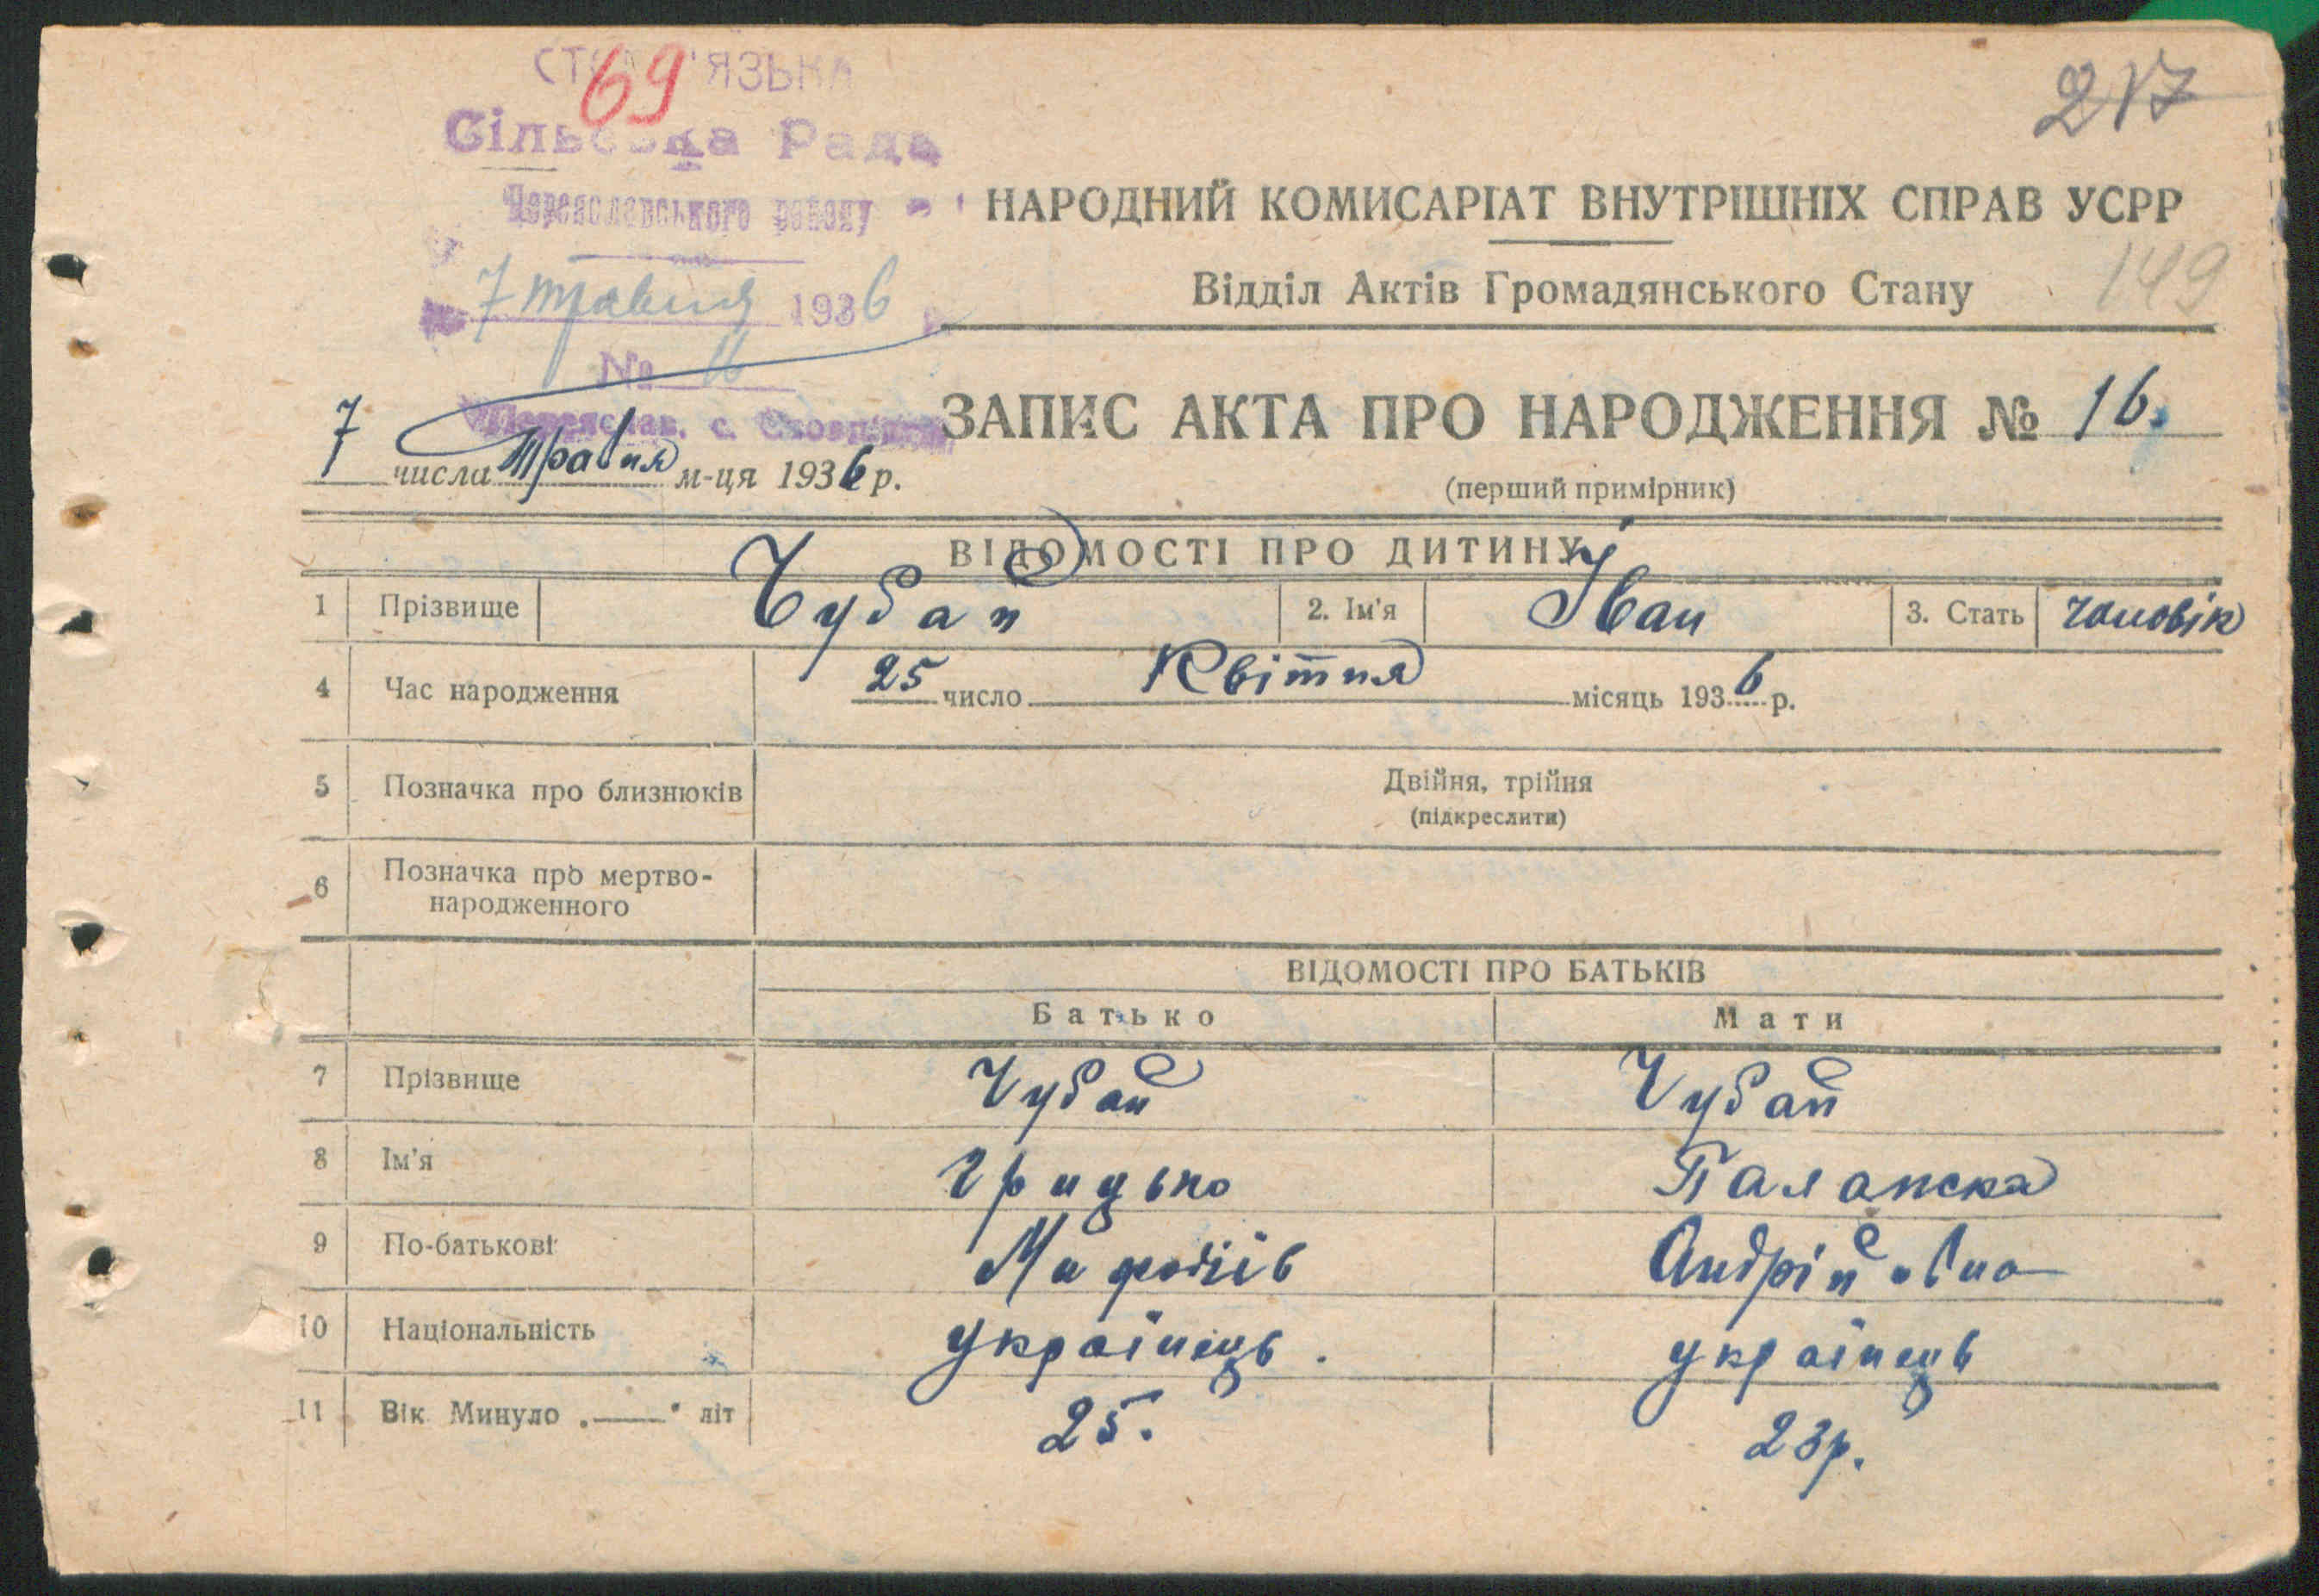 69
217
Сільська Рада
Переяславського району
НАРОДНИЙ КОМИСАРІАТ ВНУТРІШНІХ СПРАВ УСРР
149
Відділ Актів Громадянського Стану
7 травня 1936 р.
№ 16
ЗАПИС АКТА ПРО НАРОДЖЕННЯ № 16.
7 числа травня м-ця 1936 р.
(перший примірник)
ВІДОМОСТІ ПРО ДИТИНУ
1 Прізвище Чубай 2. Ім'я Іван 3. Стать чоловік
4 Час народження 25 число Квітня місяць 1936 р.
5 Позначка про близнюків Двійня, трійня
(підкреслити)
6 Позначка про мертво-
народженного
ВІДОМОСТІ ПРО БАТЬКІВ
Батько Мати
7 Прізвище Чубай Чубай
8 Ім'я Грицько Палажка
9 По-батькові Мифодіїв Андрійовна
10 Національність українець. українець
11 Вік Минуло „——" літ 25. 23р.